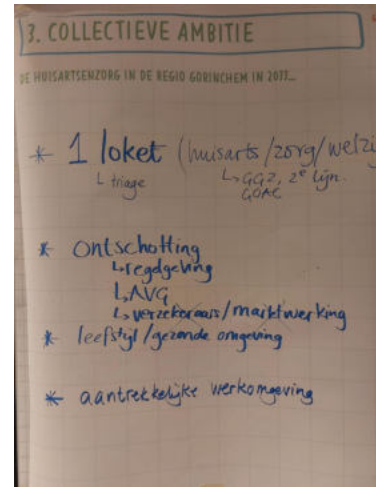 3. COLLECTIEVE AMBITIE
DE HUISARTSENZORG IN DE REGIO GORINCHEM IN 2033...
* 1 loket (huisarts/zorg/welzij
↳ triage
↳ GGZ, 2e lijn.
* ontschotting
↳ regelgeving
↳ AVG
↳ verzekeraars/marktwerking
* leefstijl/gezonde omgeving
* aantrekkelijke werkomgeving